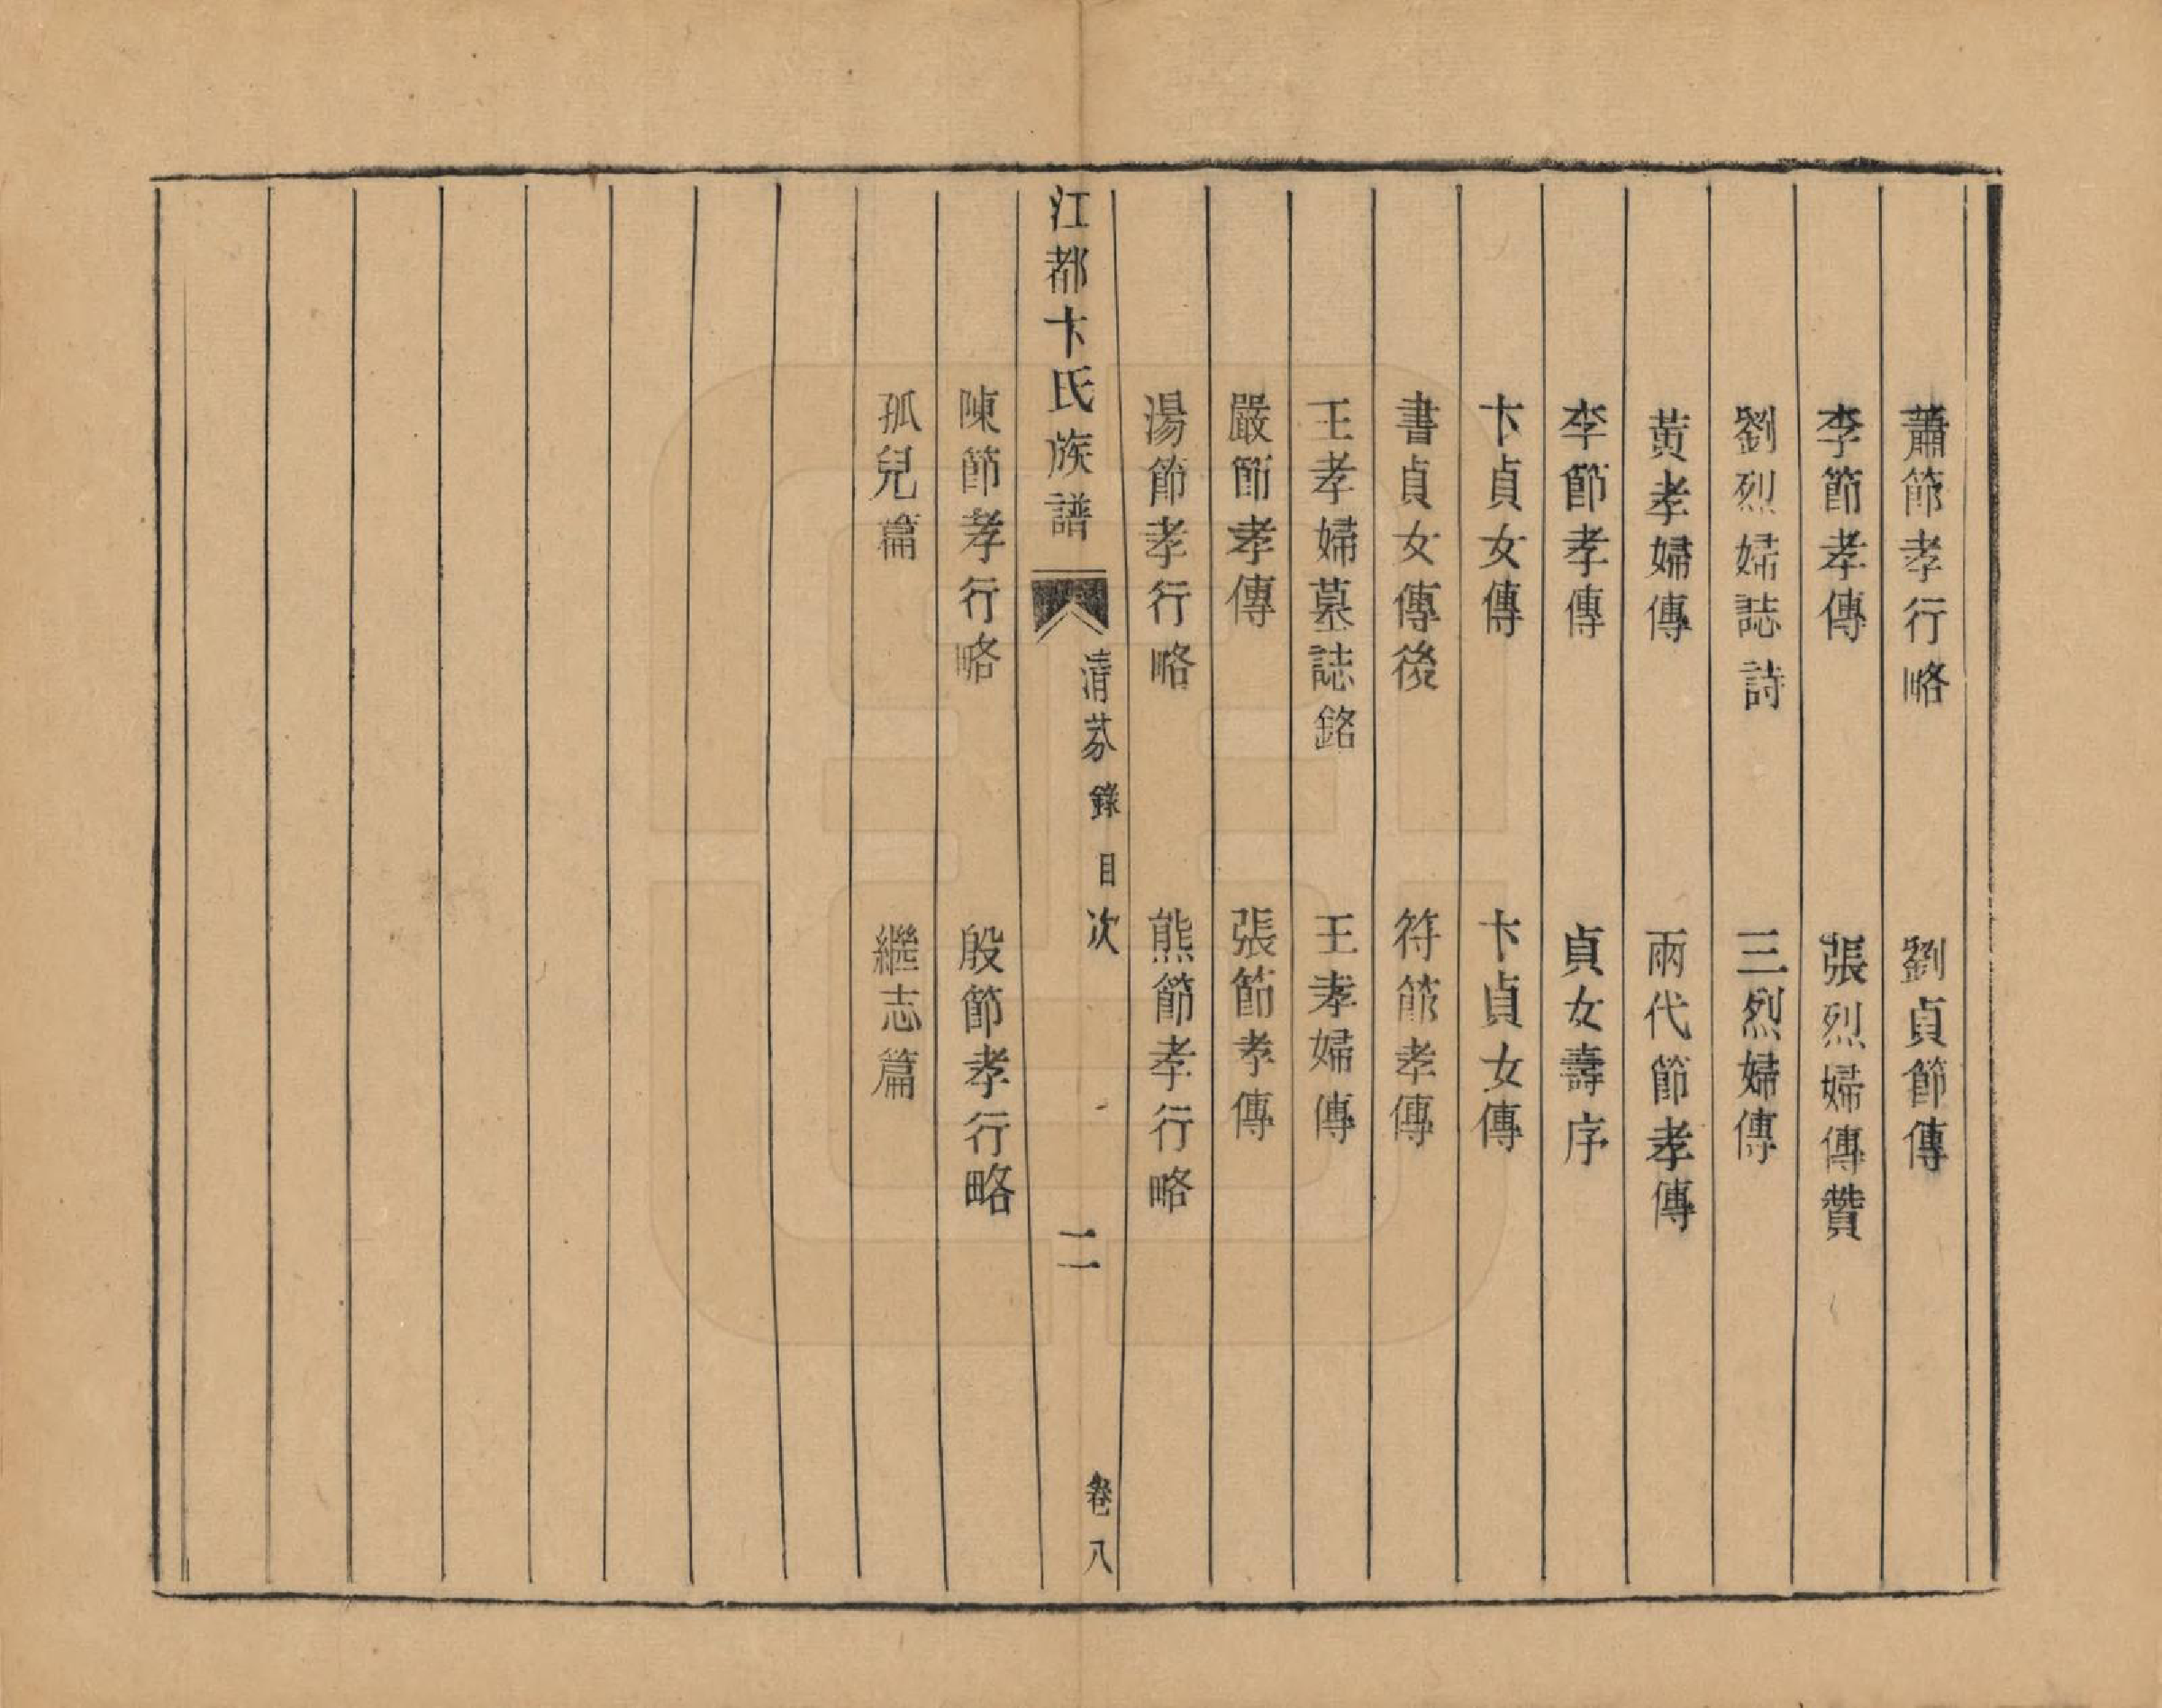 蕭節孝行略　劉貞節傳
李節孝傳　張烈婦傳贊
劉烈婦誌詩　三烈婦傳
黃孝婦傳　兩代節孝傳
李節孝傳　貞女壽序
卞貞女傳　卞貞女傳
書貞女傳後　符節孝傳
王孝婦墓誌銘　王孝婦傳
嚴節孝傳　張節孝傳
湯節孝行略　熊節孝行略
江都卞氏族譜　清芬錄目次　二　卷八
陳節孝行略　殷節孝行略
孤兒篇　繼志篇